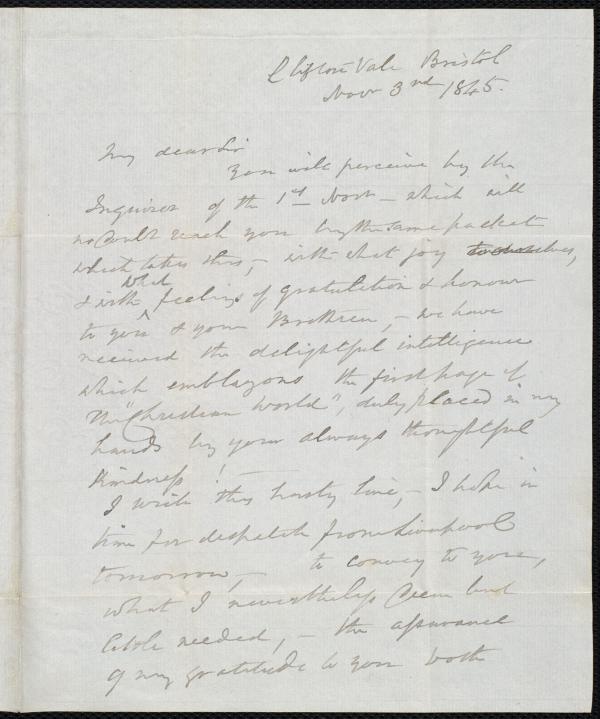 Clifton Vale Bristol
Novr 3rd 1845.
My dear Sir
You will perceive by the
Inquirer of the 1st Novr — which will
no doubt reach you by the same packet
which takes this, — with what joy to ourselves,
& with what feelings of gratulation & honour
to you & your Brethren, — we have
received the delightful intelligence
which emblazons the first page of
the "Christian World", duly placed in my
hands by your always thoughtful
kindness! —
I write this hasty line, — I hope in
time for despatch from Liverpool
tomorrow, — to convey to you,
what I nevertheless deem but
little needed, — the assurance
of my gratitude to you both